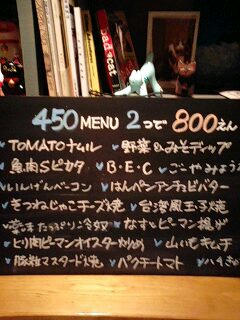 450 MENU 2つで 800えん
TOMATOナムル 野菜&みそディップ
魚肉Sピカタ B・E・C ごーやみょう
いんげんベーコン はんぺんアンチョビバター
きつねじゃこチーズ焼 台湾風玉子焼
たっぷり冷奴 なすとピーマン揚
とり肉ピーマンオイスター炒め 山いもキムチ
豚雑マスタード焼 パクチートマト